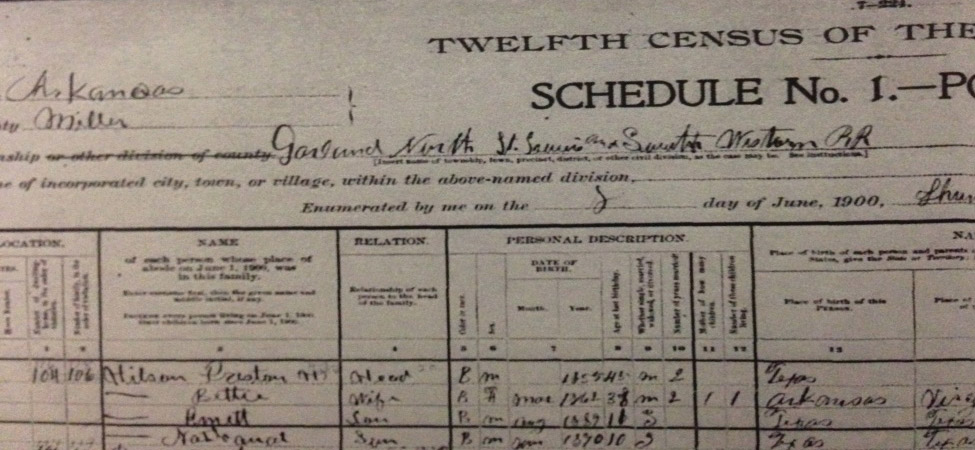 7—224.
TWELFTH CENSUS OF THE
Arkansas
SCHEDULE No. 1.—PO
ty Miller
nship or other division of county Garland North St. Louis and South Western RR
[Insert name of township, town, precinct, district, or other civil division, as the case may be. See instructions.]
e of incorporated city, town, or village, within the above-named division,
Enumerated by me on the day of June, 1900,
OCATION. NAME RELATION. PERSONAL DESCRIPTION. NA
of each person whose place of abode on June 1, 1900, was in this family.
Enter surname first, then the given name and middle initial, if any.
Include every person living on June 1, 1900.
Omit children born since June 1, 1900.
Relationship of each person to the head of the family.
Sex.
DATE OF BIRTH.
Month. Year.
Age at last birthday.
Whether single, married, widowed, or divorced.
Number of years married.
Mother of how many children.
Number of these children living.
Place of birth of each person and parents
Place of birth of this Person.
3 4 5 6 7 8 9 10 11 12 13
104 106 Preston Head B m 1855 45 m 2 Texas
Wife B F mar 1862 38 m 2 1 1 Arkansas
Emett Son B m aug S Texas
Son B m S Texas Texas